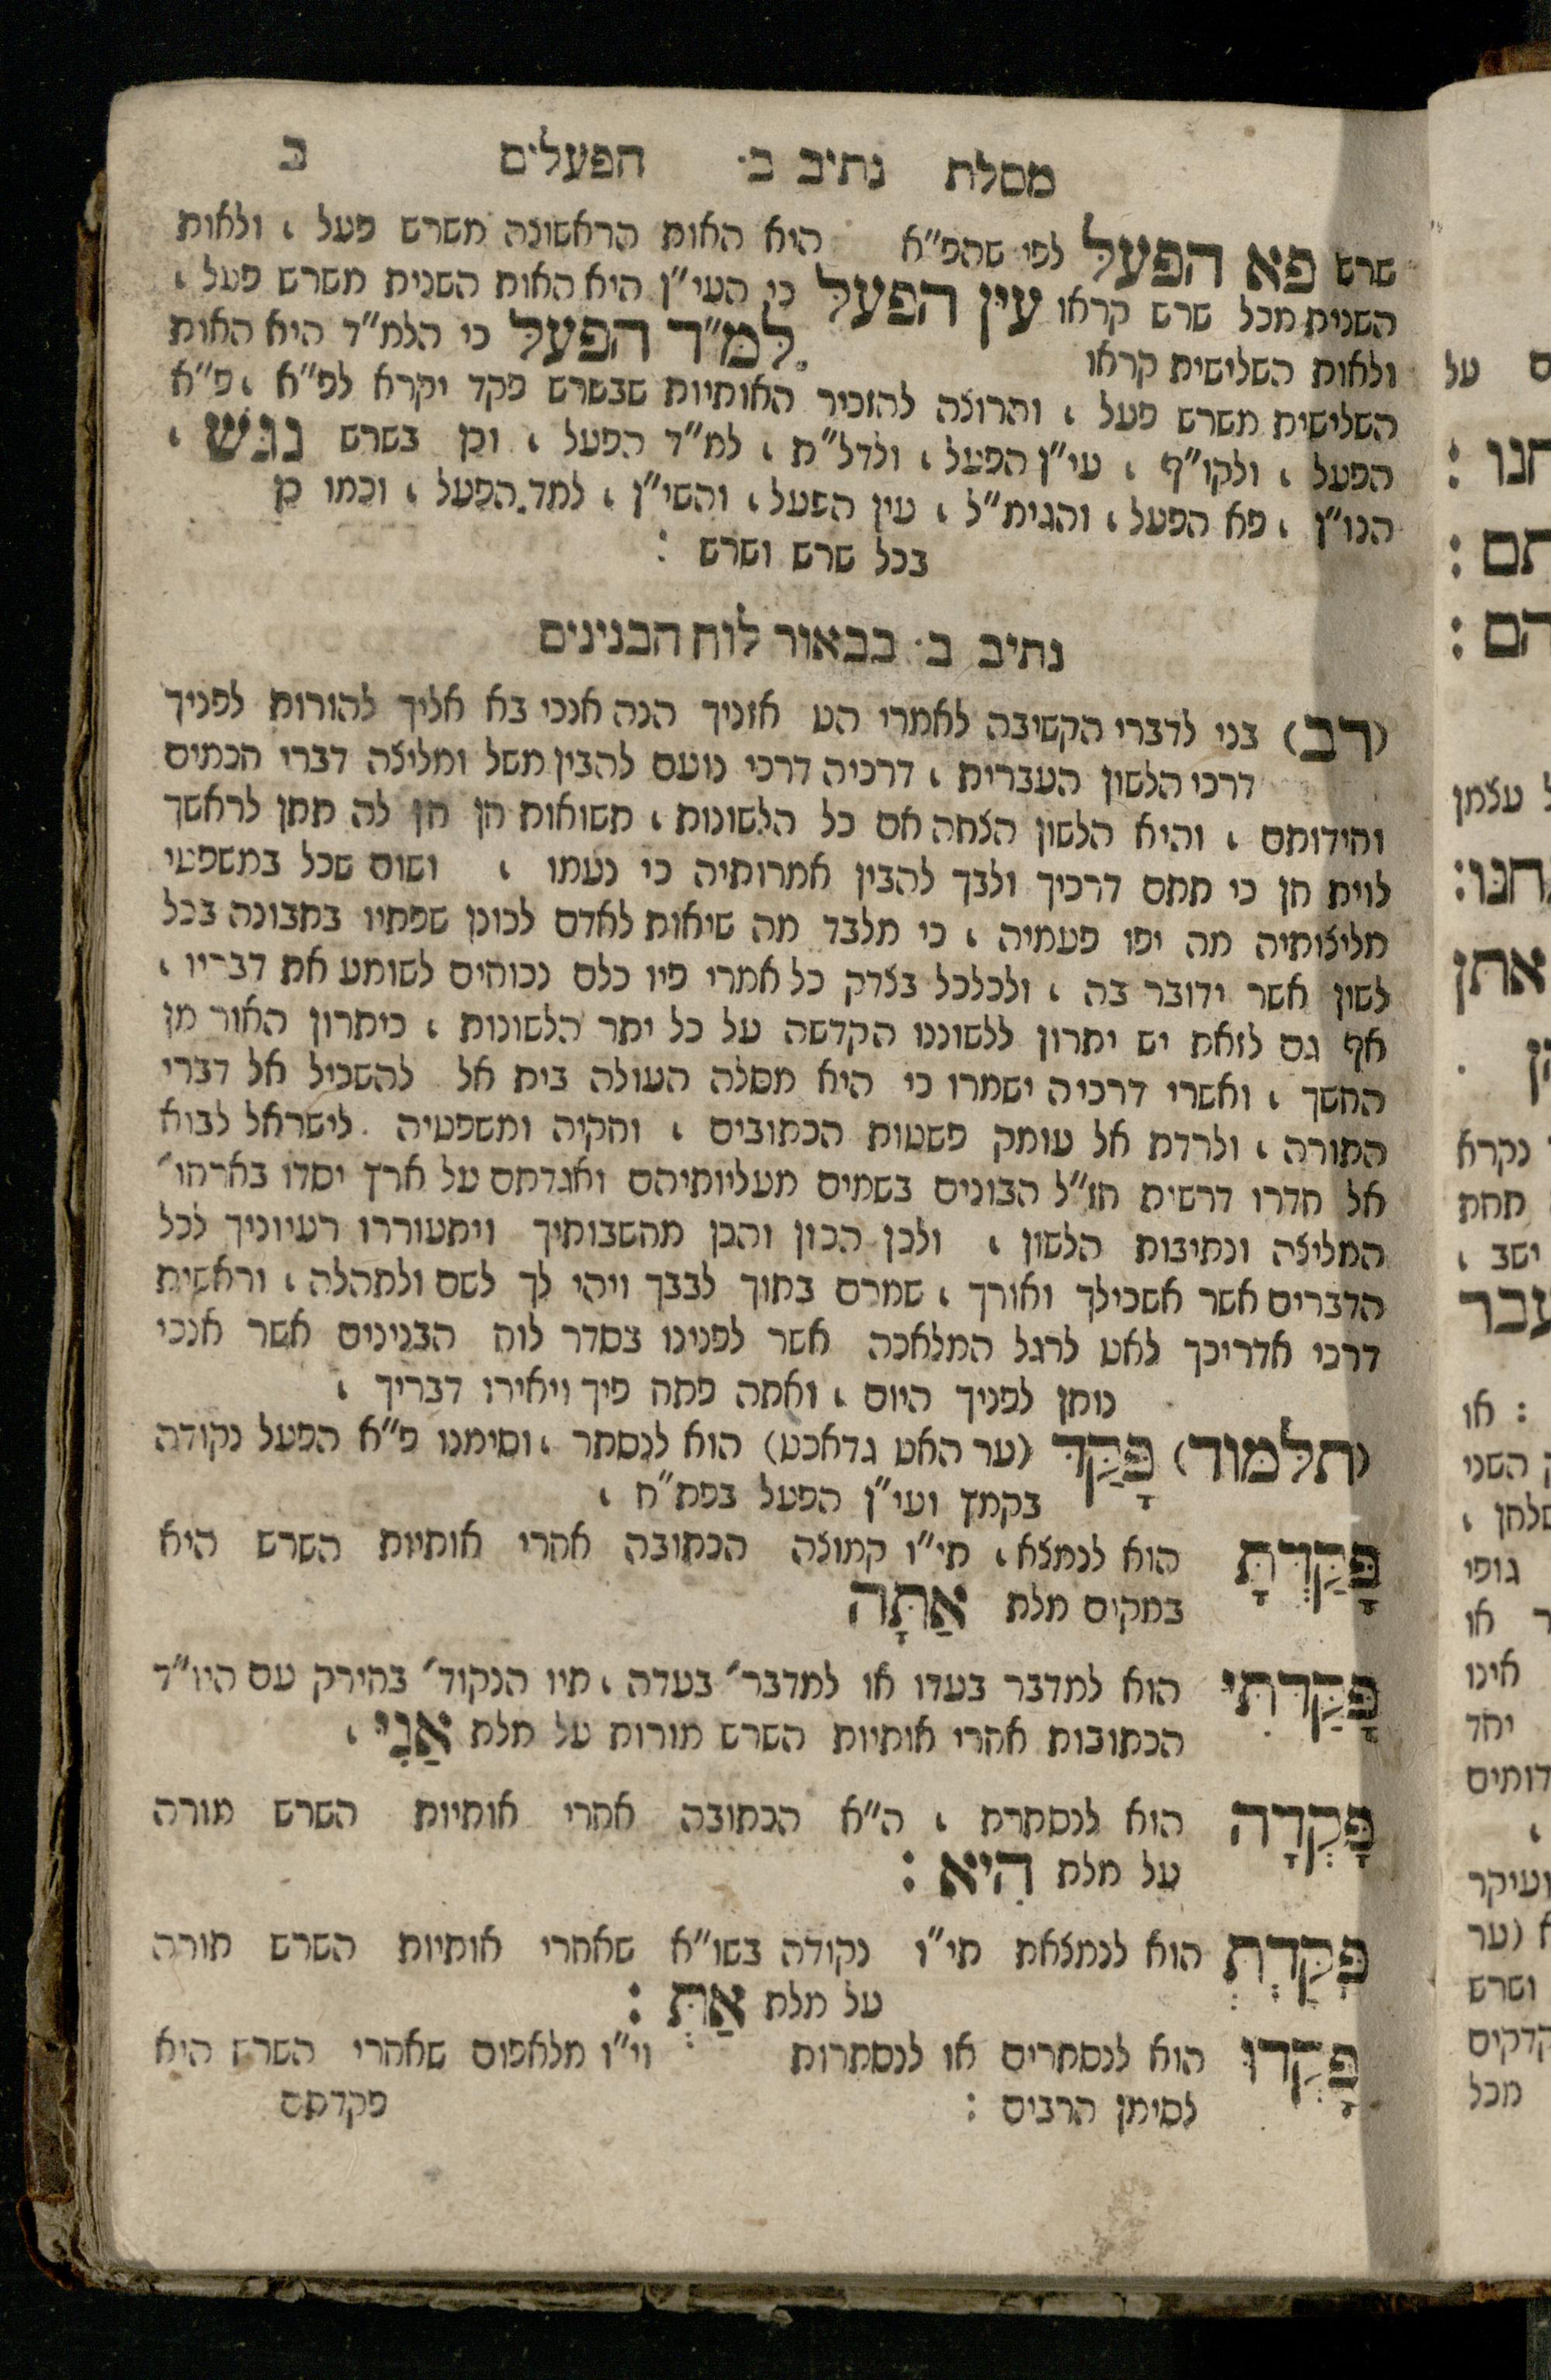 מסלת נתיב ב׳ הפעלים ב
שרש פא הפעל לפי שהפ״א היא האות הראשונה משרש פעל , ולאות
השנית מכל שרש קראו עין הפעל כי העי״ן היא האות השנית משרש פעל ,
ולאות השלישית קראו למ״ד הפעל כי הלמ״ד היא האות
השלישית משרש פעל , והרוצה להזכיר האותיות שבשרש פקד יקרא לפ״א , פ״א
הפעל , ולקו״ף , עי״ן הפעל , ולדל״ת , למ״ד הפעל , וכן בשרש נגש ,
הנו״ן , פא הפעל , והגימ״ל , עין הפעל , והשי״ן , למד הפעל , וכמו כן
בכל שרש ושרש :
נתיב ב׳ בבאור לוח הבנינים
(רב) בני לדברי הקשיבה לאמרי הט אזניך הנה אנכי בא אליך להורות לפניך
דרכי הלשון העברית , דרכיה דרכי נועם להבין משל ומליצה דברי חכמים
וחידותם , והיא הלשון הצחה אם כל הלשונות , תשואות חן חן לה תתן לראשך
לוית חן כי תתם דרכיך ולבך להבין אמרותיה כי נעמו , ושום שכל במשפטי
מליצותיה מה יפו פעמיה , כי מלבד מה שיאות לאדם לכונן שפתיו בתבונה בכל
לשון אשר ידובר בה , ולכלכל בצדק כל אמרי פיו כלם נכוחים לשומע את דבריו ,
אף גם לזאת יש יתרון ללשוננו הקדשה על כל יתר הלשונות , כיתרון האור מן
החשך , ואשרי דרכיה ישמרו כי היא מסלה העולה בית אל להשכיל אל דברי
התורה , ולרדת אל עומק פשטות הכתובים , וחקיה ומשפטיה לישראל לבוא
אל חדרו דרשית חז״ל הבונים בשמים מעליותיהם ואגדתם על ארץ יסדו בארחו׳
המליצה ונתיבות הלשון , ולכן הכון והכן מחשבותיך ויתעוררו רעיוניך לכל
הדברים אשר אשכילך ואורך , שמרם בתוך לבבך ויהי לך לשם ולתהלה , וראשית
דרכי אדריכך לאט לרגל המלאכה אשר לפנינו בסדר לוח הבנינים אשר אנכי
נותן לפניך היום , ואתה פתח פיך ויאירו דבריך ,
(תלמוד) פָּקַד (ער האט געדאכט) הוא לנסתר , וסימנו פ״א הפעל נקודה
בקמץ ועי״ן הפעל בפת״ח ,
פָּקַדְתָּ הוא לנמצא , תי״ו קמוצה הכתובה אחרי אותיות השרש היא
במקום מלת אַתָּה
פָּקַדְתִּי הוא למדבר בעדו או למדבר׳ בעדה , תיו הנקוד׳ בחירק עם היו״ד
הכתובות אחרי אותיות השרש מורות על מלת אַנִי ,
פָּקְדָה הוא לנסתרת , ה״א הכתובה אחרי אותיות השרש מורה
על מלת הִיא :
פָּקַדְתְּ הוא לנמצאת תי״ו נקודה בשו״א שאחרי אותיות השרש מורה
על מלת אַתְּ :
פָּקְדוּ הוא לנסתרים או לנסתרות וי״ו מלאפום שאחרי השרש היא
לסימן הרבים : פקדתם